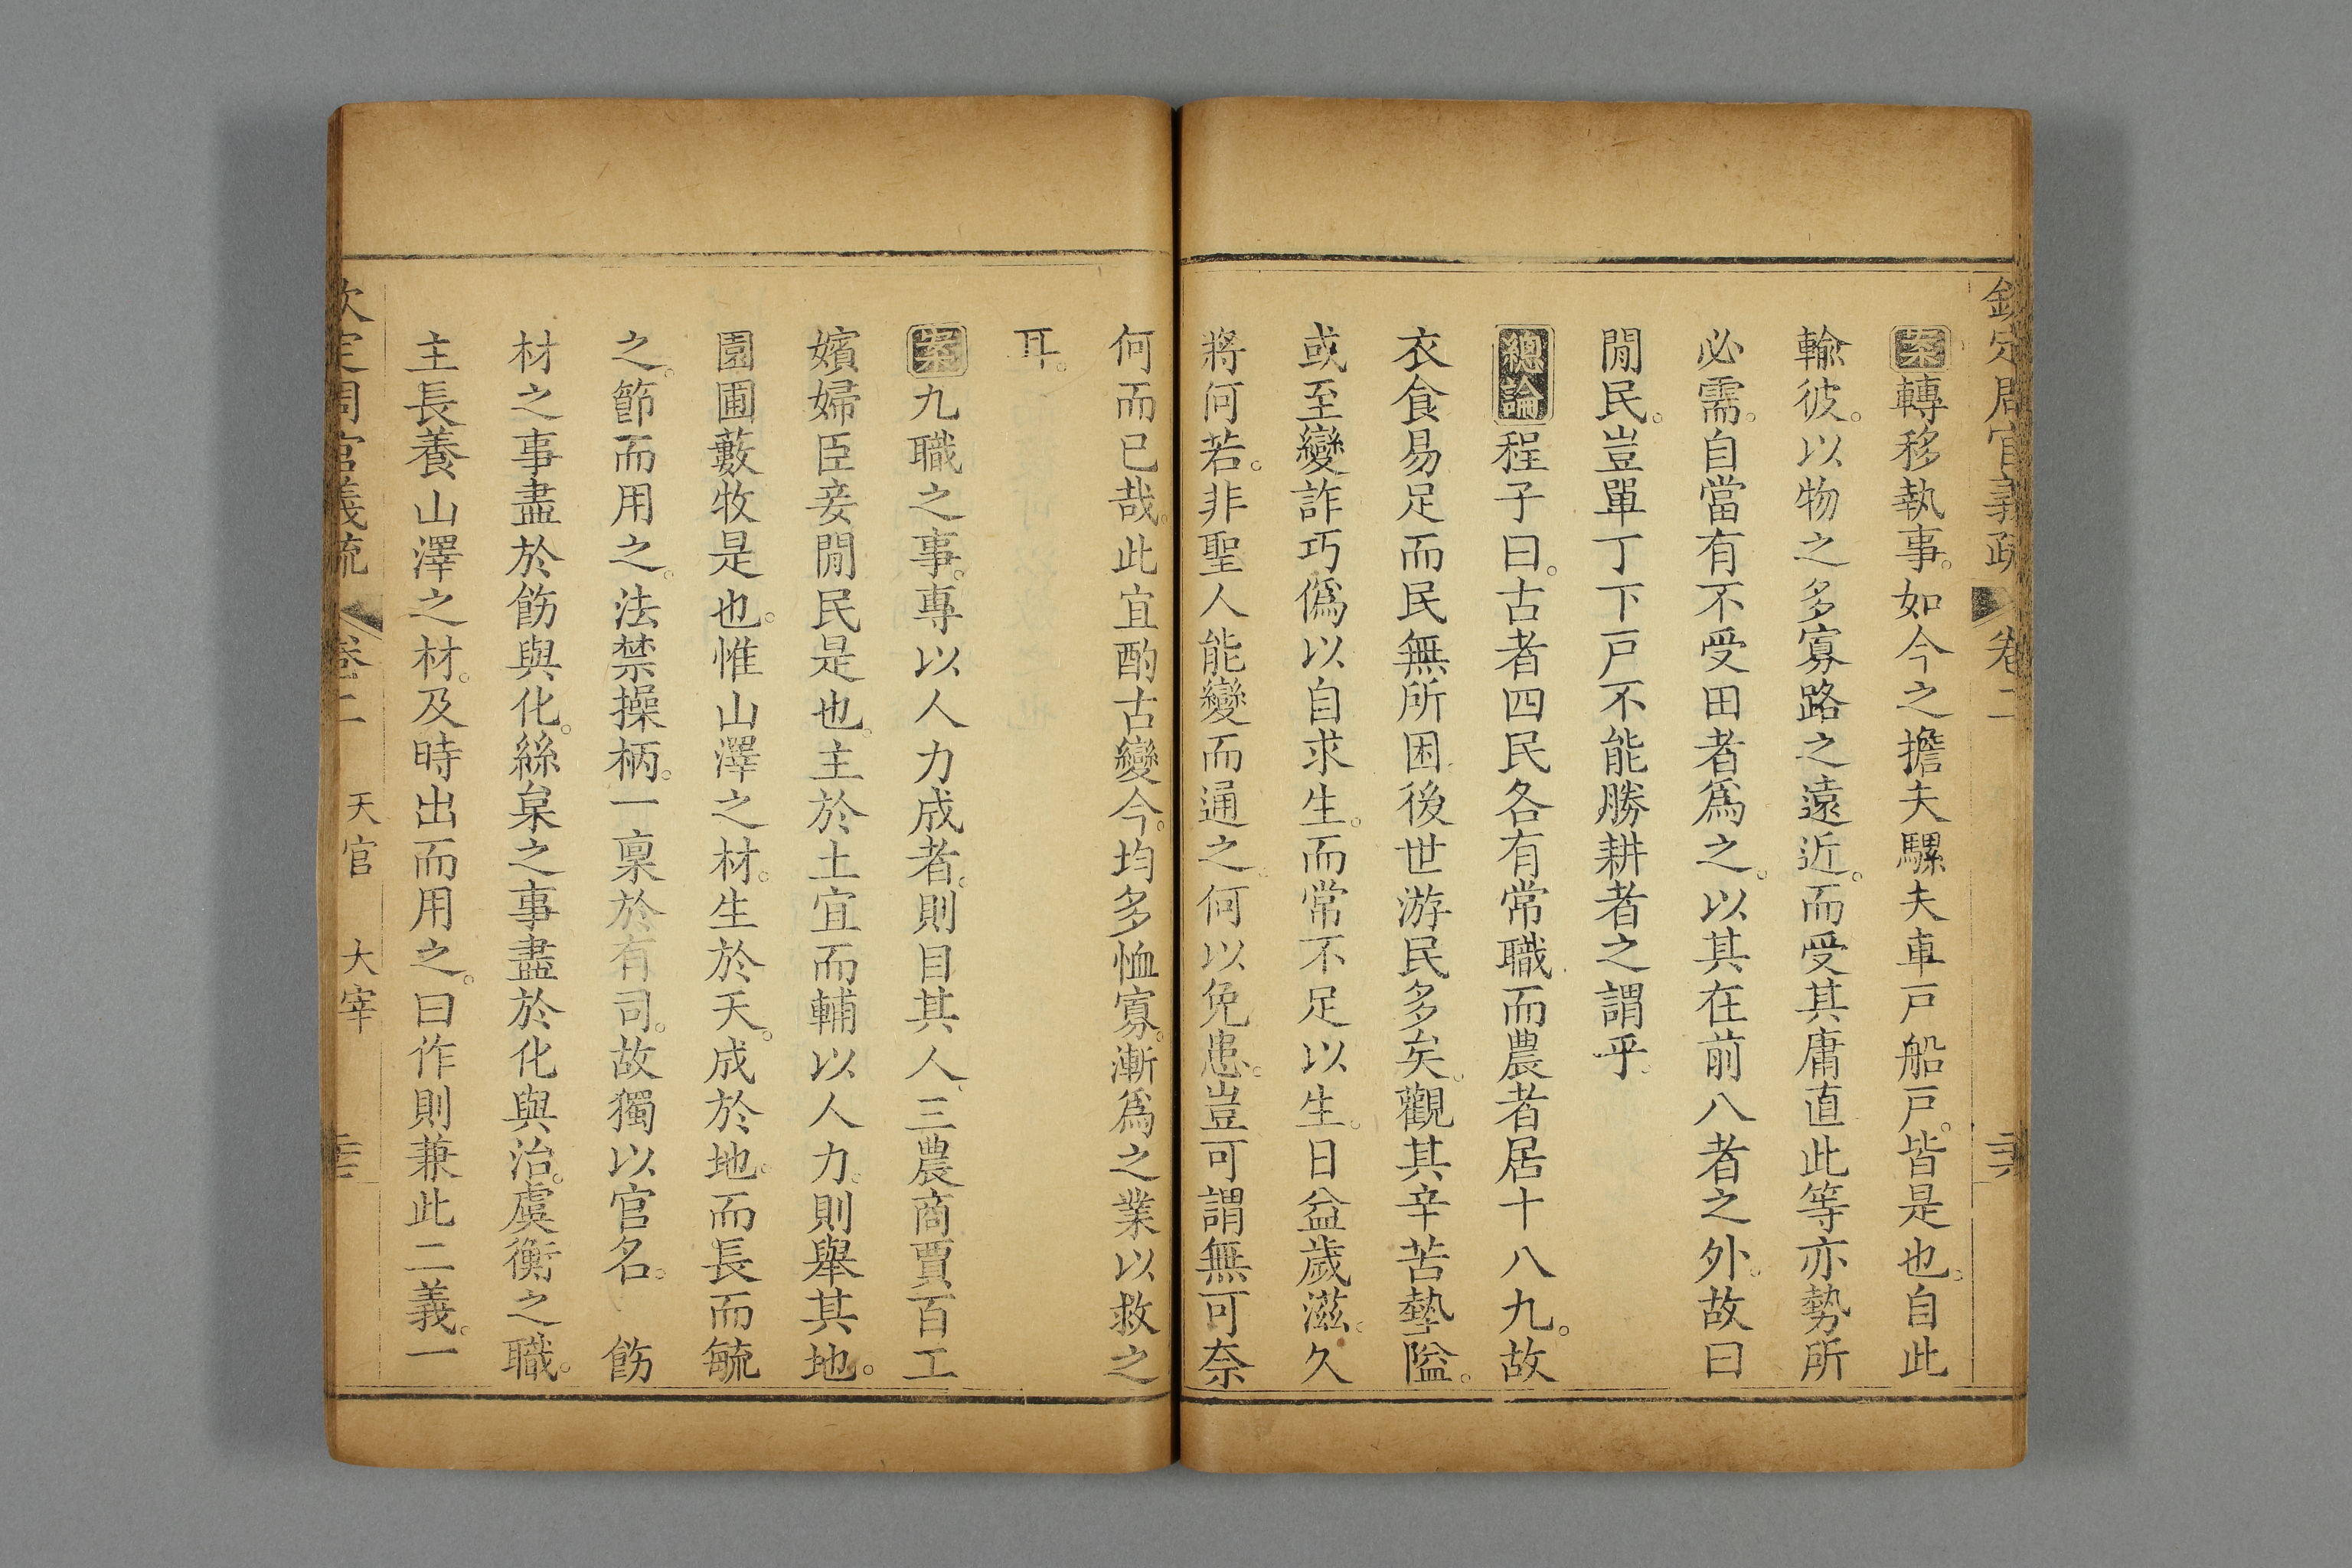 欽定周官義疏 卷二
案轉移執事。如今之擔夫騾夫車戸船戸。皆是也。自此
輸彼。以物之多寡路之遠近。而受其庸直此等亦勢所
必需。自當有不受田者爲之。以其在前八者之外。故曰
閒民。豈單丁下戸不能勝耕者之謂乎。
總論程子曰。古者四民各有常職而農者居十八九。故
衣食易足而民無所困後世游民多矣。觀其辛苦孷隘。
或至變詐巧僞以自求生。而常不足以生。日益歲滋。久
將何若。非聖人能變而通之。何以免患。豈可謂無可奈
何而已哉。此宜酌古變今。均多恤寡。漸爲之業以救之
耳。
案九職之事。專以人力成者。則目其人、三農商賈百工
嬪婦臣妾閒民是也。主於土宜而輔以人力。則舉其地。
園圃藪牧是也。惟山澤之材。生於天。成於地。而長而毓
之。節而用之。法禁操柄。一稟於有司。故獨以官名。 飭
材之事盡於飭與化。絲枲之事盡於化與治。虞衡之職。
主長養山澤之材。及時出而用之。曰作則兼此二義。一
欽定周官義疏 卷二 天官 大宰